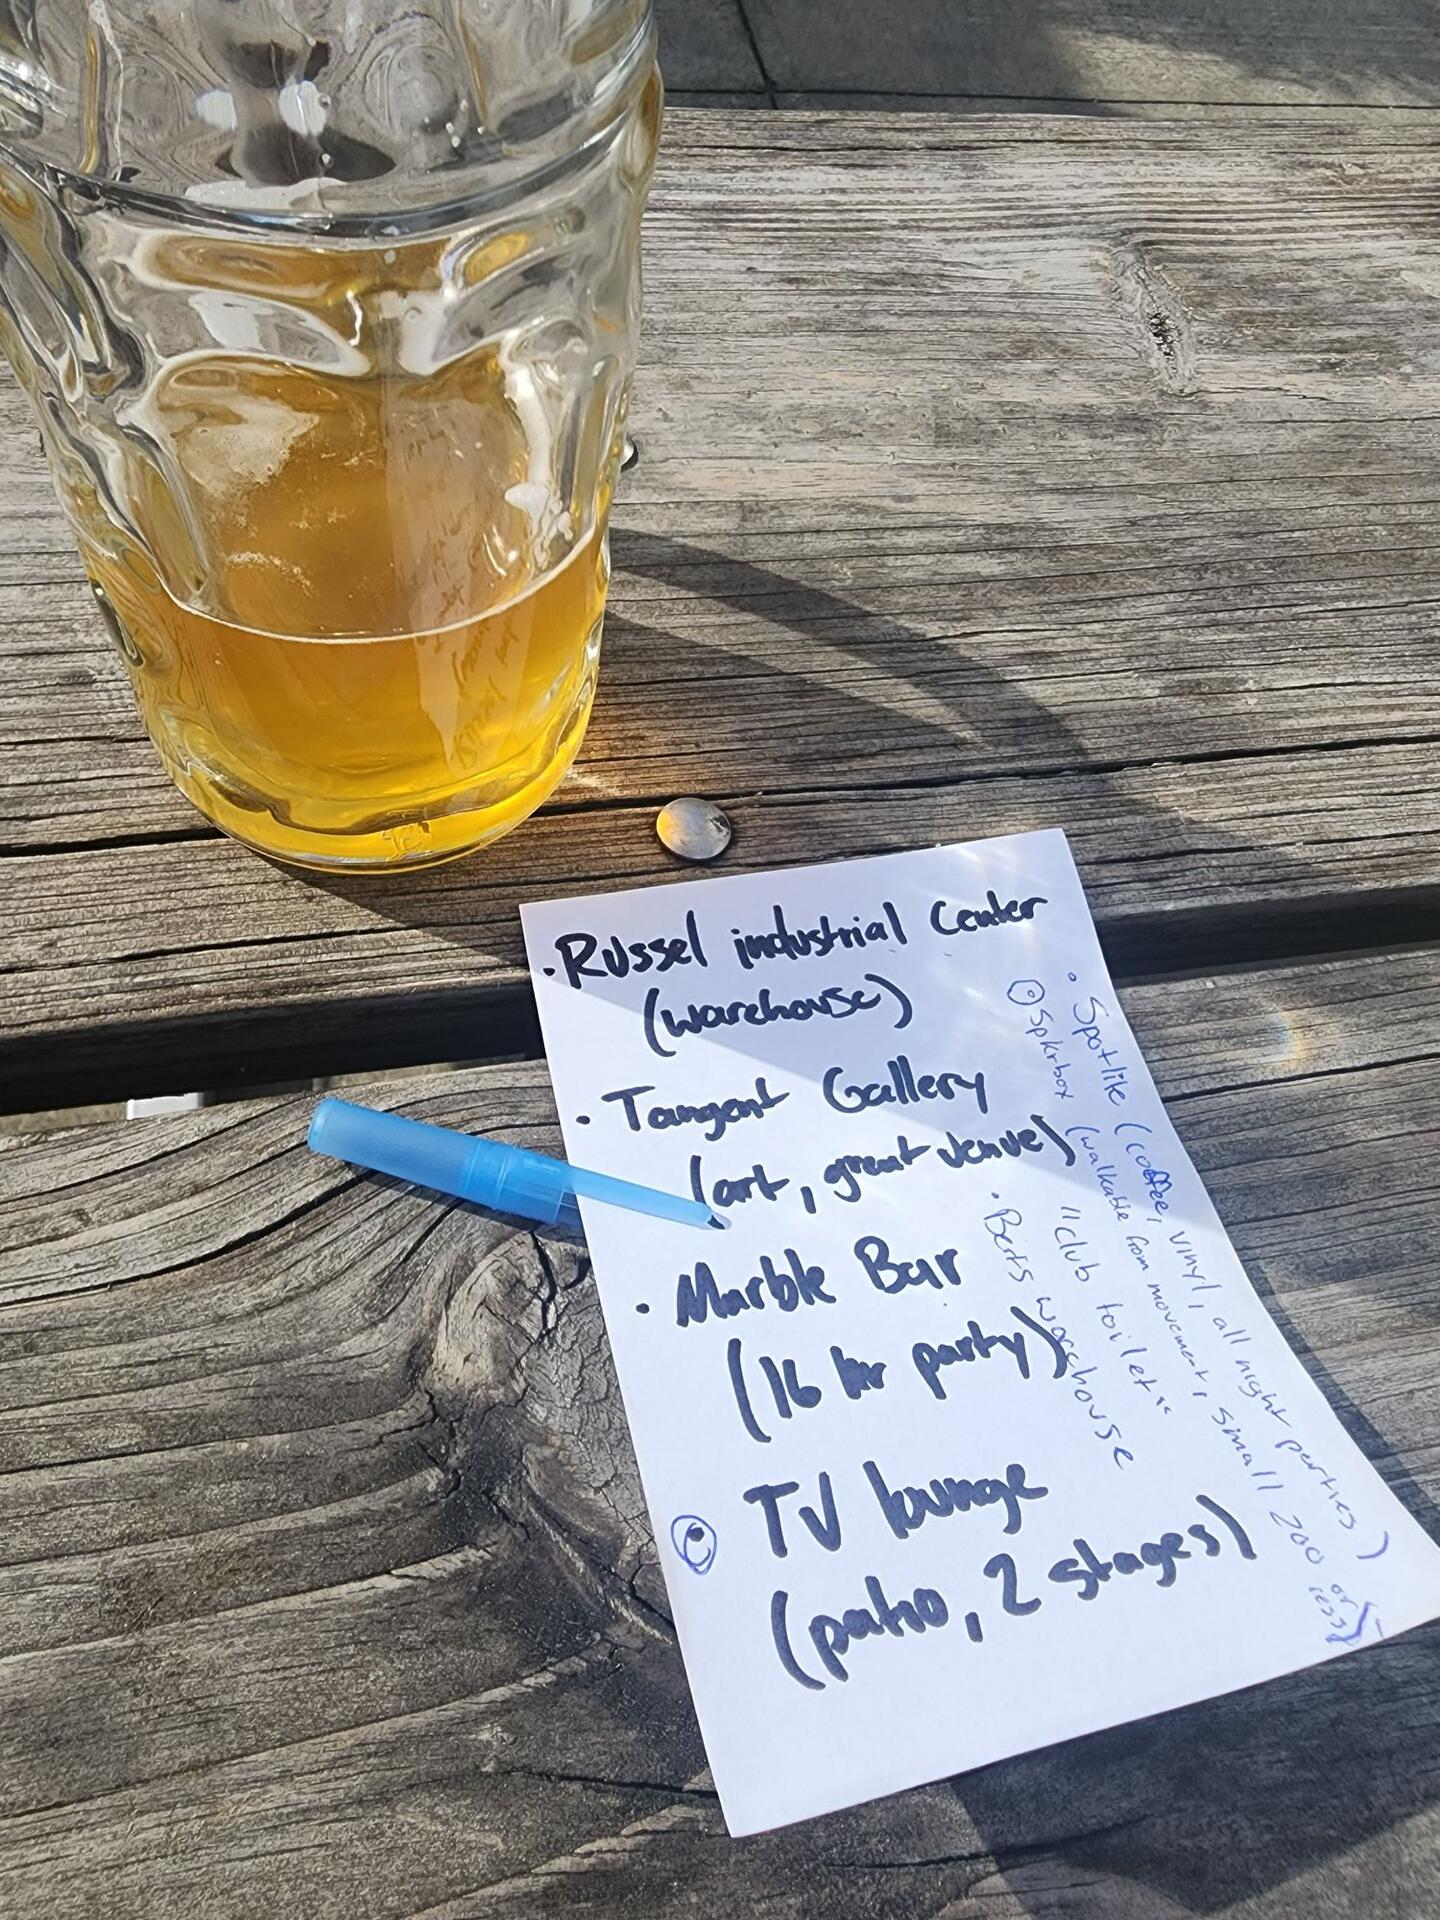 • Russel industrial Center
(warehouse)
• Tangent Gallery
(art, great venue)
• Marble Bar
(16 hr party)
TV lounge
(patio, 2 stages)
• Spotlite (coffee, vinyl, all night parties)
Spkrbox (walkable from movement, small 200 or less)
"club toilet"
• Berts warehouse